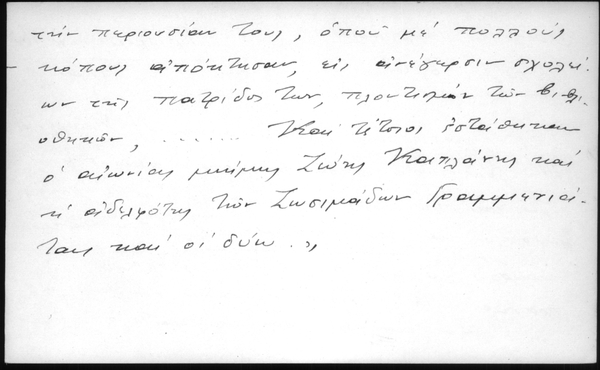 τήν περιουσίαν τους, ὁποῦ μέ πολλούς
κόπους ἀπόκτησαν, εἰς ἀνέγερσιν σχολεί-
ων τῆς πατρίδος των, πλουτισμόν τῶν βιβλι-
οθηκῶν, ....... Καί τέτοιοι ἐστάθηκαν
ὁ αἰωνίας μνήμης Ζώης Καπλάνης καί
ἡ ἀδελφότης τῶν Ζωσιμάδων Γραμμενιά-
ται καί οἱ δύο..»